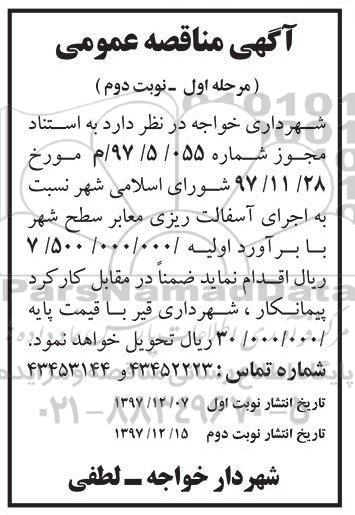 آگهی مناقصه عمومی
( مرحله اول - نوبت دوم )
شهرداری خواجه در نظر دارد به استناد
مجوز شماره ۰۵۵/ ۵/ ۹۷/م مورخ
۲۸/ ۱۱/ ۹۷ شورای اسلامی شهر نسبت
به اجرای آسفالت ریزی معابر سطح شهر
با برآورد اولیه /۰۰۰/۰۰۰/ ۵۰۰/ ۷
ریال اقدام نماید ضمناً در مقابل کارکرد
پیمانکار ، شهرداری قیر با قیمت پایه
/۰۰۰/۰۰۰/ ۳۰ ریال تحویل خواهد نمود.
شماره تماس : ۴۳۴۵۲۲۲۳ و ۴۳۴۵۳۱۴۴
تاریخ انتشار نوبت اول ۰۷ /۱۲ /۱۳۹۷
تاریخ انتشار نوبت دوم ۱۵ /۱۲ /۱۳۹۷
شهردار خواجه - لطفی